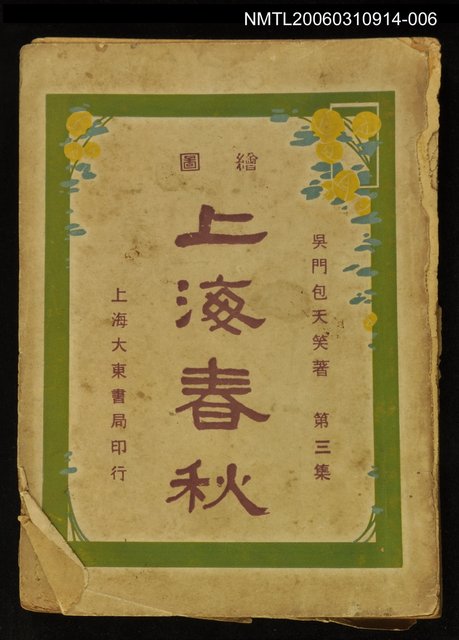 NMTL20060310914-006
繪圖
吳門包天笑著 第三集
上海春秋
上海大東書局印行